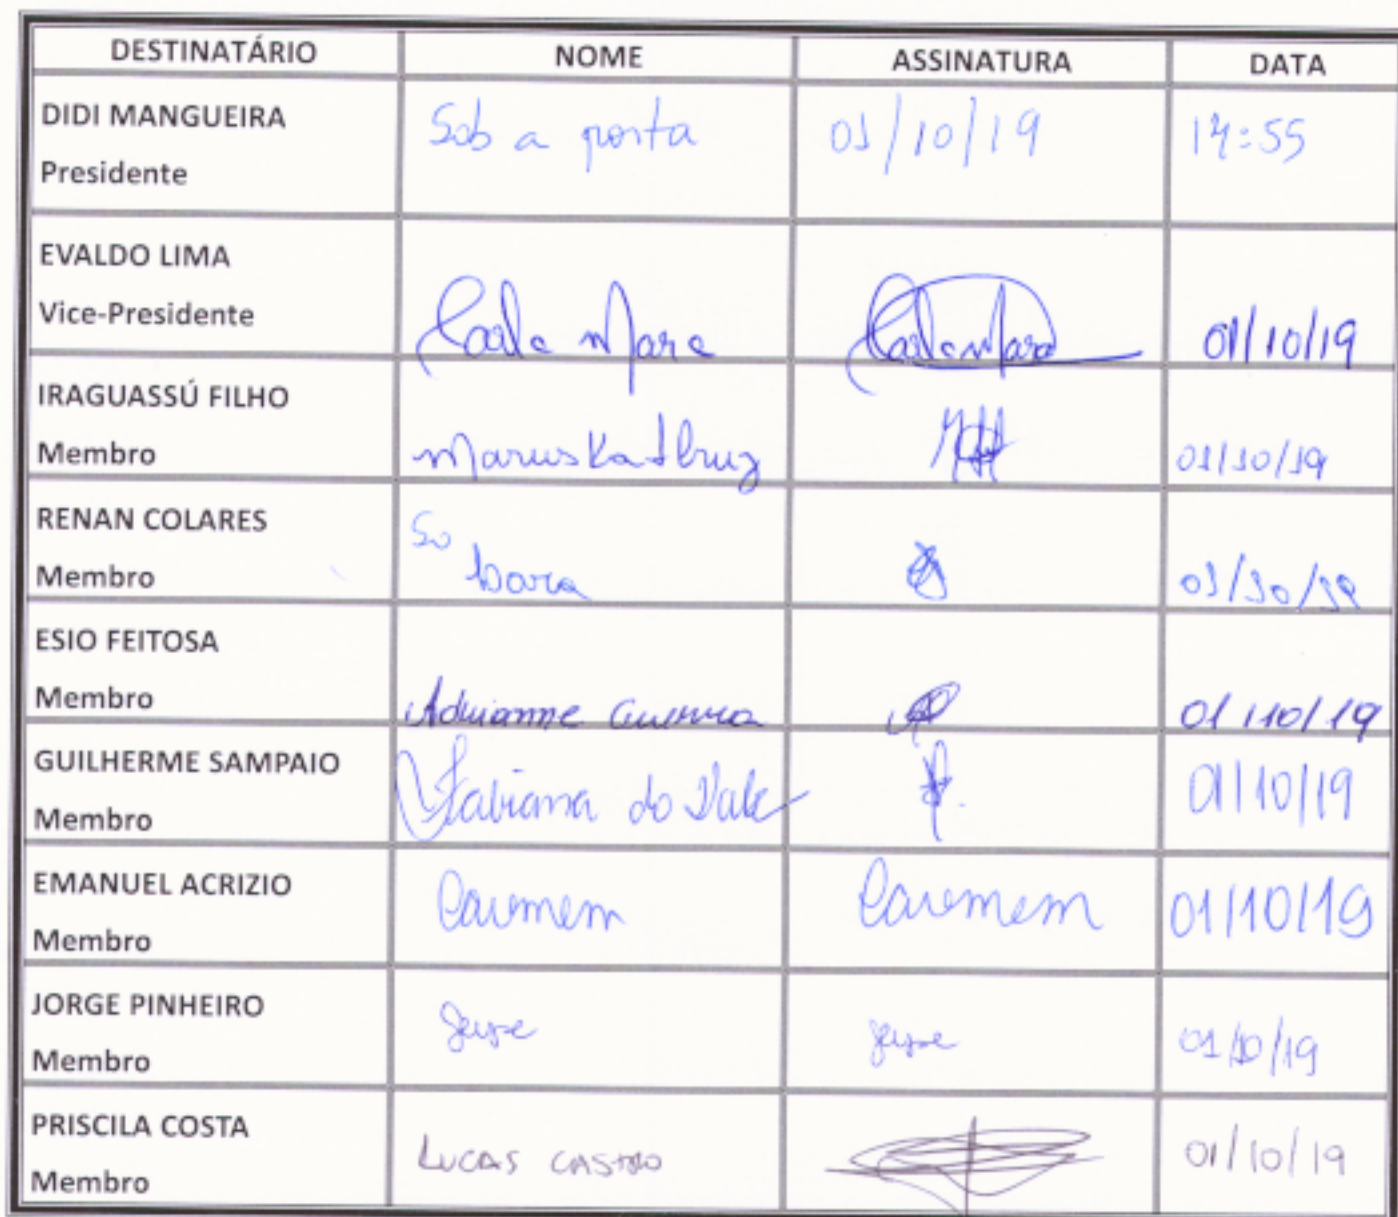 DESTINATÁRIO NOME ASSINATURA DATA
DIDI MANGUEIRA
Presidente
Sob a porta 01/10/19 14:55
EVALDO LIMA
Vice-Presidente
Carla Mara Carla Mara 01/10/19
IRAGUASSÚ FILHO
Membro
Maruska 01/10/19
RENAN COLARES
Membro
01/10/19
ESIO FEITOSA
Membro
Adrianne Guerra 01/10/19
GUILHERME SAMPAIO
Membro
Fabiana do Vale 01/10/19
EMANUEL ACRIZIO
Membro
Carmem Carmem 01/10/19
JORGE PINHEIRO
Membro
01/10/19
PRISCILA COSTA
Membro
LUCAS CASTRO 01/10/19